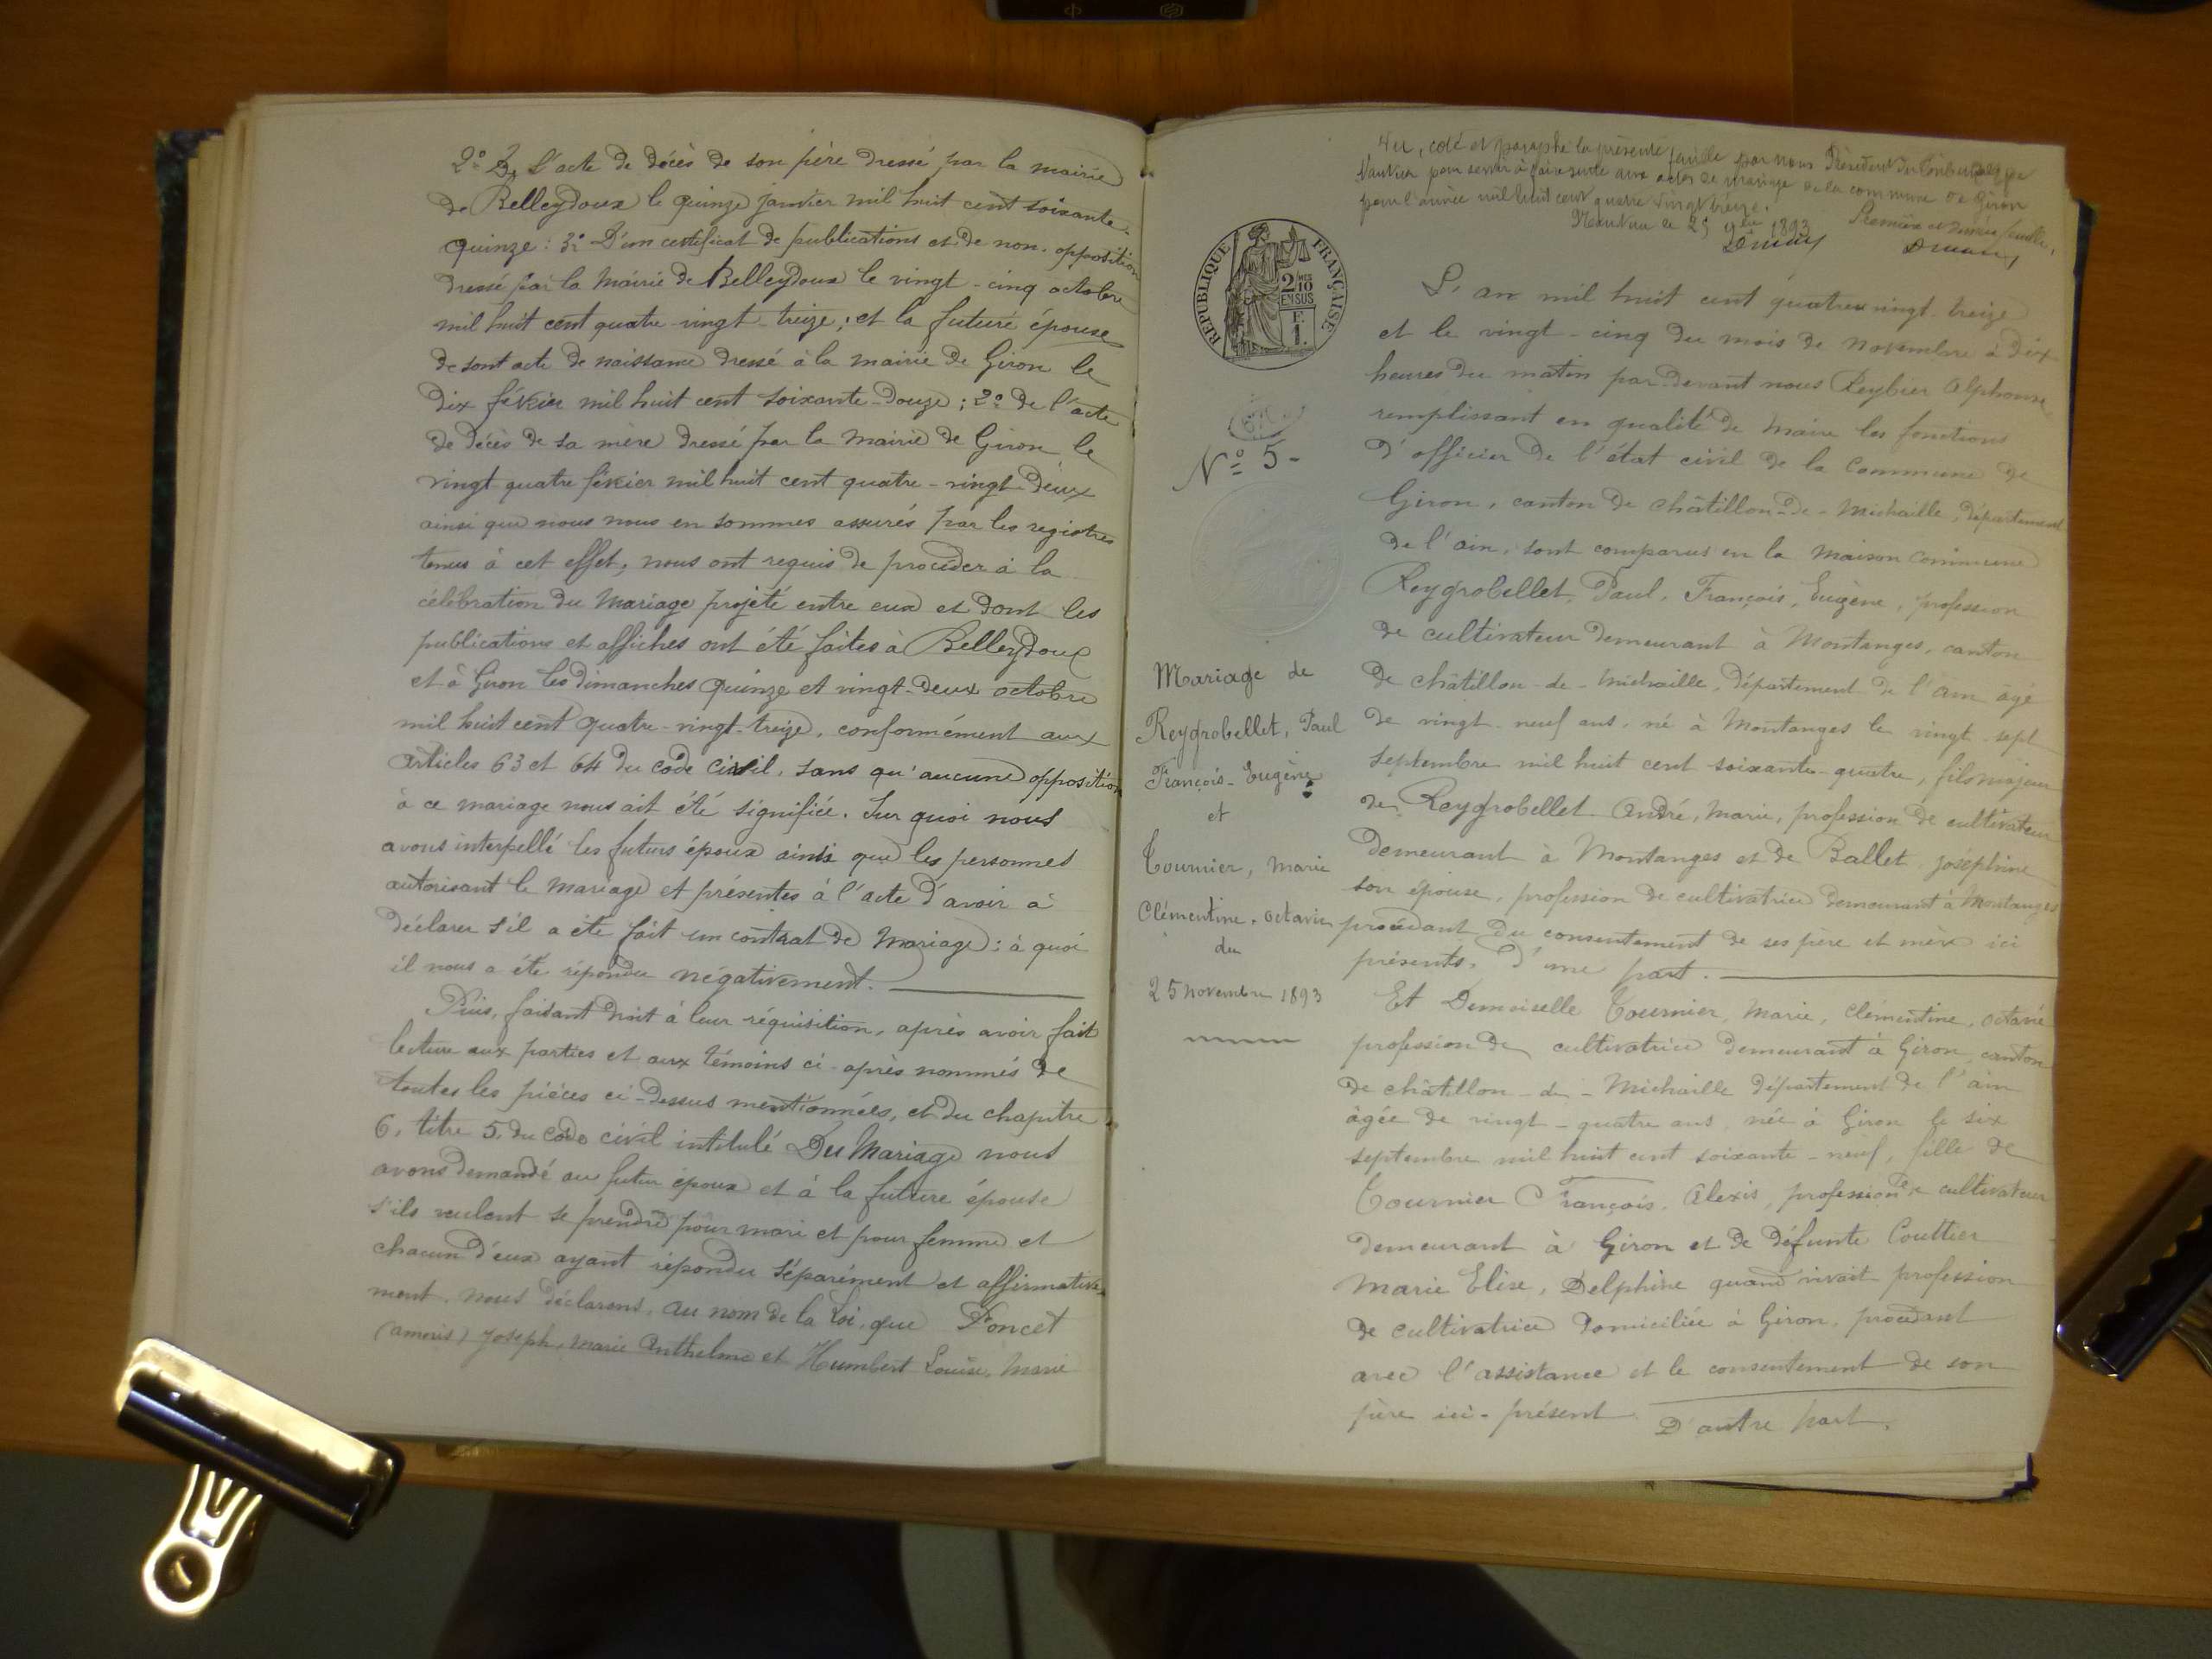 2° De l'acte de décès de son père dressé par la mairie
de Belleydoux le quinze janvier mil huit cent soixante-
quinze : 3° D'un certificat de publications et de non-opposition
dressé par la Mairie de Belleydoux le vingt-cinq octobre
mil huit cent quatre-vingt-treize ; et la future épouse
de sont acte de naissance dressé à la mairie de Giron le
dix février mil huit cent soixante-douze ; 2° de l'acte
de décès de sa mère dressé par la Mairie de Giron le
vingt quatre février mil huit cent quatre-vingt-deux
ainsi que nous nous en sommes assurés par les registres
tenus à cet effet, nous ont requis de procéder à la
célébration du Mariage projeté entre eux et dont les
publications et affiches ont été faites à Belleydoux
et à Giron les dimanches quinze et vingt-deux octobre
mil huit cent quatre-vingt-treize, conformément aux
articles 63 et 64 du code civil, sans qu'aucune opposition
à ce mariage nous ait été signifiée. Sur quoi nous
avons interpellé les futurs époux ainsi que les personnes
autorisant le mariage et présentes à l'acte d'avoir à
déclarer s'il a été fait un contrat de Mariage ; à quoi
il nous a été répondu négativement.
Puis, faisant droit à leur réquisition, après avoir fait
lecture aux parties et aux témoins ci-après nommés de
toutes les pièces ci-dessus mentionnées, et du chapitre
6, titre 5, du code civil intitulé Du Mariage nous
avons demandé au futur époux et à la future épouse
s'ils veulent se prendre pour mari et pour femme et
chacun d'eux ayant répondu séparément et affirmative-
ment, nous déclarons, au nom de la Loi, que Poncet
Joseph, Marie Anthelme et Humbert Louise, Marie
Vu, coté et paraphé la présente feuille par nous Président du Tribunal de
Nantua pour servir à faire suite aux actes de mariage de la commune de Giron
pour l'année mil huit cent quatre vingt treize.
Nantua le 25 9bre 1893
Première et dernière feuille,
REPUBLIQUE FRANÇAISE
2/10
EN SUS
F.
1.
N° 5-
Mariage de
Reygrobellet, Paul
François-Eugène
et
Tournier, Marie
Clémentine, Octavie
du
25 novembre 1893
L'an mil huit cent quatre vingt-treize
et le vingt-cinq du mois de novembre à dix
heures du matin par-devant nous Reybier Alphonse
remplissant en qualité de maire les fonctions
d'officier de l'état civil de la Commune de
Giron, canton de Châtillon-de-Michaille, département
de l'ain, sont comparus en la Maison Commune
Reygrobellet, Paul, François, Eugène, profession
de cultivateur demeurant à Montanges, canton
de châtillon-de-Michaille, département de l'ain âgé
de vingt-neuf ans, né à Montanges le vingt-sept
septembre mil huit cent soixante-quatre, fils majeur
de Reygrobellet André, Marie, profession de cultivateur
demeurant à Montanges et de Ballet Joséphine
son épouse, profession de cultivatrice demeurant à Montanges
procédant du consentement de ses père et mère ici
présents, d'une part.
Et Demoiselle Tournier, Marie, Clémentine, Octavie
profession de cultivatrice demeurant à Giron, canton
de châtillon-de-Michaille département de l'ain
âgée de vingt-quatre ans, née à Giron le six
septembre mil huit cent soixante-neuf, fille de
Tournier François, Alexis, profession de cultivateur
demeurant à Giron et de défunte Couttier
Marie Elise, Delphine quand vivait profession
de cultivatrice domiciliée à Giron, procédant
avec l'assistance et le consentement de son
père ici-présent D'autre part.